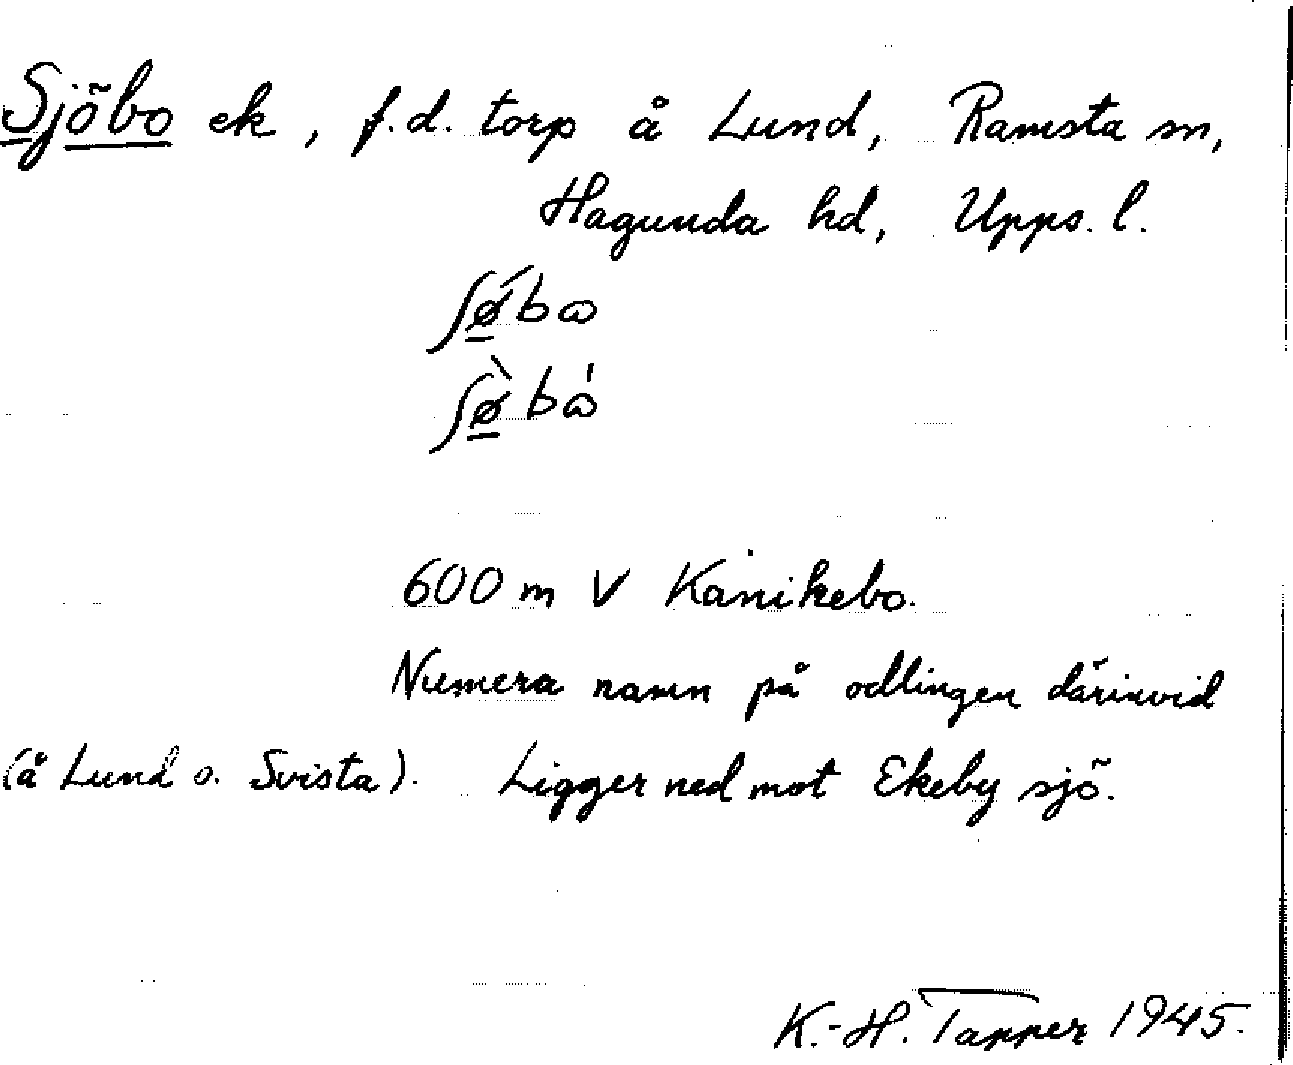 Sjöbo ek, f.d. torp å Lund, Ramsta sn,
Hagunda hd, Upps. l.
ʃǿ̲bɷ
ʃø̲̀bɷ́
600 m V Kanikebo.
Numera namn på odlingen därinvid
(å Lund o. Svista). Ligger ned mot Ekeby sjö.
K.-H. Tapper 1945.